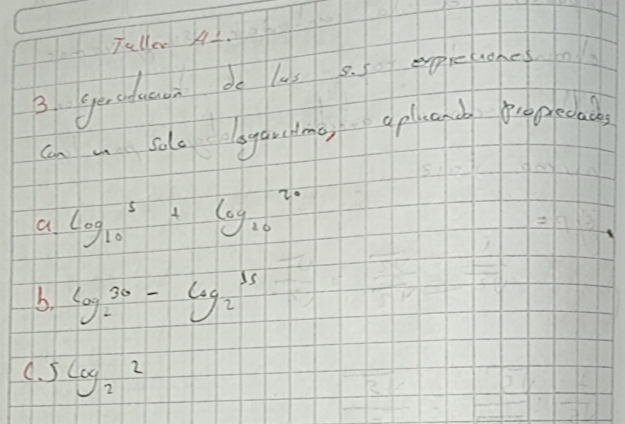 Taller A1.
3. de las s.s expreciones
Con un solo logaritmo, aplicando propiedades
a. Log₁₀⁵ + Log₁₀²⁰
b. Log₂³⁰ - Log₂¹⁵
C. 5 Log₂²